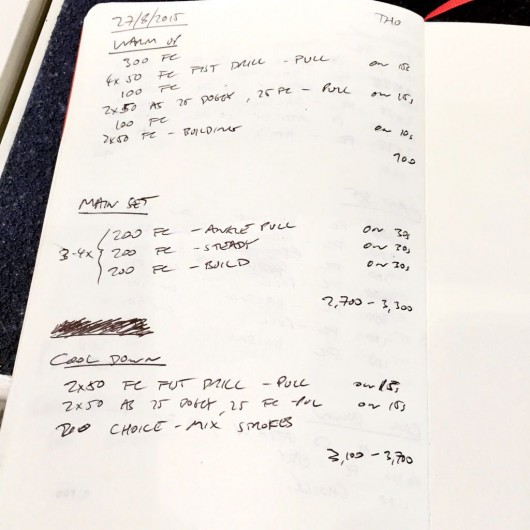 27/8/2015 THO
WARM UP
300 FC
4x50 FC FIST DRILL - PULL on 15s
100 FC
2x50 AS 25 DOGGY, 25 FC - PULL on 15s
100 FC
2x50 FC - BUILDING on 10s
900
MAIN SET
3-4x { 200 FC - ANKLE PULL on 30s
200 FC - STEADY on 30s
200 FC - BUILD on 30s
2,700 - 3,300
COOL DOWN
2x50 FC FIST DRILL - PULL on 15s
2x50 AS 25 DOGGY, 25 FC - PULL on 15s
200 CHOICE - MIX STROKES
3,100 - 3,700